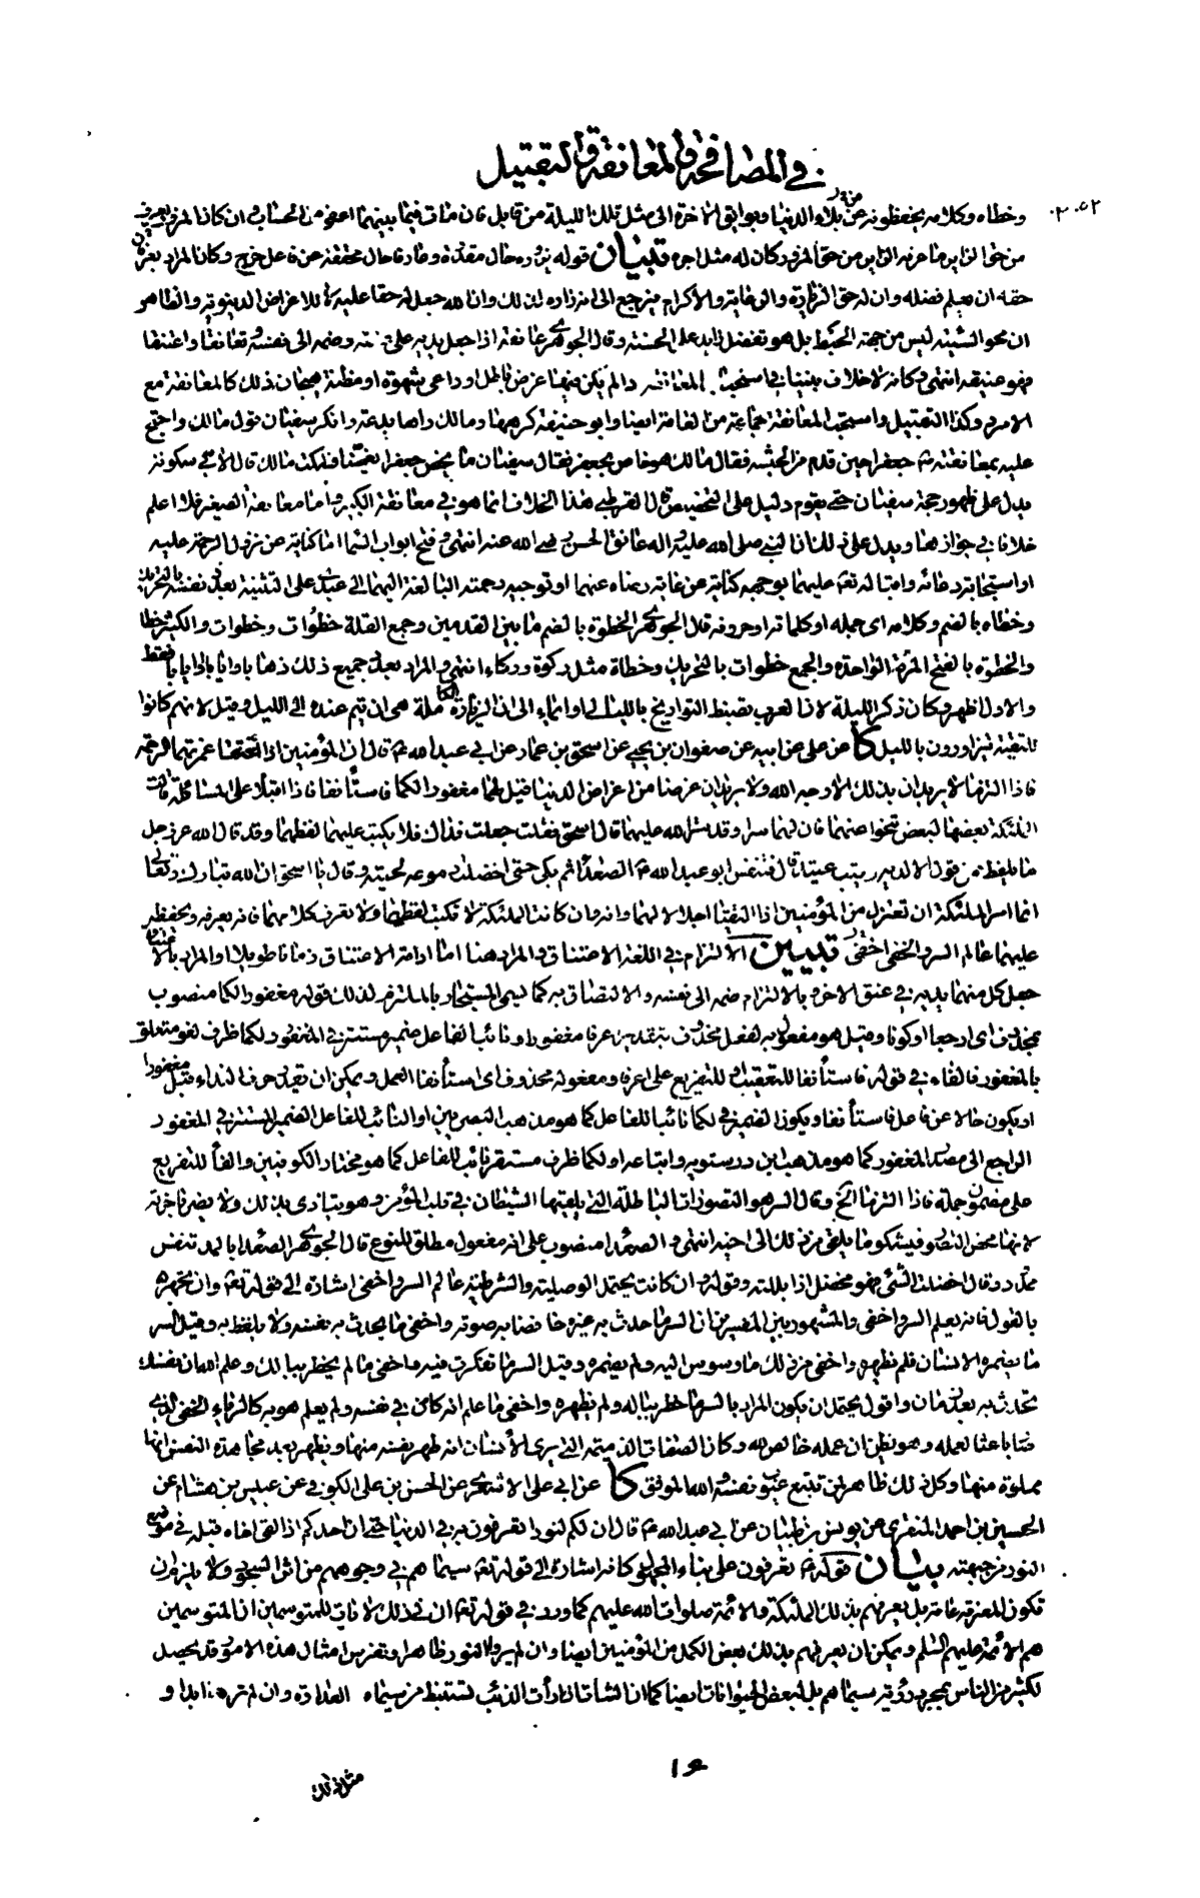 في المصافحة والمعانقة والتقبيل
وخطاه وكلامه يحفظونه من بلاء الدنيا وبوايق الاخرة الى مثل تلك الليلة من قابل فان مات فيما بينهما اعفى من الحساب وان كان المزور يعرف
من حق الزاير ما عرفه الزاير من حق المزور كان له مثل اجره تبيان قوله يزوره حال مقدرة وعارفا حال محققة عن فاعل خرج وكان المراد بعرفان
حقه ان يعلم فضله وان له حق الزيارة والرعاية والاكرام فيرجع الى انه زاره لذلك وان الله جعل له حقا عليه لا للاغراض الدنيوية والظاهر
ان محو السيئة ليس من جهة الحبط بل هو تفضل زايد على الحسنة وقال الجوهري عانقه اذا جعل يديه على عنقه وضمه الى نفسه وتعانقا واعتنقا
فهو عنيقه انتهى وكانه لا خلاف بيننا في استحباب المعانقة اذا لم يكن فيها غرض باطل او داعي شهوة او مظنة هيجان ذلك كالمعانقة مع
الامرد وكذا التقبيل واستحب المعانقة جماعة من العامة ايضا وابو حنيفة كرهها ومالك راها بدعة وانكر سفيان قول مالك واحتج
عليه بمعانقته ص جعفرا حين قدم من الحبشة فقال مالك هو خاص بجعفر فقال سفيان ما يخص جعفرا يعمنا فسكت مالك قال الآبي سكوته
يدل على ظهور حجة سفيان حتى يقوم دليل على التخصيص قال القرطبي هذا الخلاف انما هو في معانقة الكبير واما معانقة الصغير فلا اعلم
خلافا في جوازها ويدل على ذلك ان النبي صلى الله عليه واله عانق الحسن رضي الله عنه انتهى وفتح ابواب السماء اما كناية عن نزول الرحمة عليه
او استجابة دعائه واقباله تع عليهما بوجهه كناية عن غاية رضاه عنهما او توجيه رحمته البالغة اليهما
وخطاه بالضم وكلامه اى جمله او كلماته او حروفه قال الجوهري الخطوة بالضم ما بين القدمين وجمع القلة خطوات وخطوات والكثير خطا
والخطوة بالفتح المرة الواحدة والجمع خطوات بالتحريك وخطاء مثل ركوة وركاء انتهى والمراد بعدد جميع ذلك ذهابا وايابا او ايابا فقط
والاول اظهر وكان ذكر الليلة لان العرب تضبط التواريخ بالليالي او ايماء الى ان الزيارة الكاملة هي ان يتم عنده الى الليل وقيل لانهم كانوا
للتقية يتزاورون بالليل كا عن علي عن ابيه عن صفوان بن يحيى عن اسحق بن عمار عن ابي عبد الله ع قال ان المؤمنين اذا اعتنقا غمرتهما الرحمة
فاذا التزما لا يريدان بذلك الا وجه الله ولا يريدان غرضا من اغراض الدنيا قيل لهما مغفورا لكما فاستأنفا فاذا اقبلا على المسائلة قالت
الملئكة بعضها لبعض تنحوا عنهما فان لهما سرا وقد ستر الله عليهما قال اسحق فقلت جعلت فداك فلا يكتب عليهما لفظهما وقد قال الله عز وجل
ما يلفظ من قول الا لديه رقيب عتيد قال فتنفس ابو عبد الله ع الصعداء ثم بكى حتى اخضلت دموعه لحيته وقال يا اسحق ان الله تبارك وتعالى
انما امر الملئكة ان تعتزل من المؤمنين اذا التقيا اجلالا لهما وانه وان كانت الملئكة لا تكتب لفظهما ولا تعرف كلامهما فانه يعرفه ويحفظه
عليهما عالم السر واخفى تبيين الالتزام في اللغة الاعتناق والمراد هنا اما ادامة الاعتناق زمانا طويلا او المراد بالاعتناق
جعل كل منهما يديه في عنق الاخر وبالالتزام ضمه الى نفسه والالتصاق به كما يسمى المستجار بالملتزم لذلك قوله مغفورا لكما منصوب
بمحذوف اى ارجعا او كونا وقيل هو مفعول به لفعل محذوف بتقدير اعرفا مغفورا ونائب الفاعل ضمير مستتر في المغفور ولكما ظرف لغو متعلق
بالمغفور فالفاء في قوله فاستأنفا للتعقيب او للتفريع على اعرفا ومفعوله محذوف اى استأنفا العمل ويمكن ان يقدر حرف النداء قبل مغفورا
او يكون حالا عن فاعل فاستأنفا ويكون الضمير في لكما نائبا للفاعل كما هو مذهب البصريين او النائب للفاعل الضمير المستتر في المغفور
الراجع الى مصدر المغفور كما هو مذهب ابن درستويه واتباعه او لكما ظرف مستقر نائب للفاعل كما هو مختار الكوفيين والفاء للتفريع
على مضمون جملة فاذا التزما الخ وقال السر هو التصورات الباطلة التي يلقيها الشيطان في قلب المؤمن وهو يتاذى بذلك ولا يضر باخرته
لانها محض التصور فيشكو ما يلقى من ذلك الى اخيه انتهى والصعداء منصوب على انه مفعول مطلق للنوع قال الجوهري الصعداء بالمد تنفس
ممدود وقال اخضلت الشئ فهو مخضل اذا بللته وقوله وان كانت يحتمل الوصلية والشرطية عالم السر واخفى اشارة الى قوله تع وان تجهر
بالقول فانه يعلم السر واخفى والمشهور بين المفسرين ان السر ما حدث به غيره خافضا به صوته واخفى ما يحدث به نفسه ولا يلفظ به وقيل السر
ما يضمره الانسان فلم يظهره واخفى من ذلك ما وسوس اليه ولم يضمره وقيل السر ما تفكرت فيه واخفى ما لم يخطر ببالك وعلم الله ان نفسك
تحدث به بعد زمان واقول يحتمل ان يكون المراد بالسر ما خطر بباله ولم يظهره واخفى ما علم انه كامن في نفسه ولم يعلم هو به كالرياء الخفي الذي
صار باعثا لعمله وهو يظن ان عمله خالص لله وكالصفات الذميمة التي يرى الانسان انه طهر نفسه منها ويظهر بعد مجاهدة النفس انها
مملوة منها وكل ذلك ظاهر لمن تتبع عيوب نفسه والله الموفق كا عن ابي علي الاشعري عن الحسن بن علي الكوفي عن عبيس بن هشام عن
الحسين بن احمد المنقري عن يونس بن ظبيان عن ابي عبد الله ع قال ان لكم لنورا تعرفون به في الدنيا حتى ان احدكم اذا لقي اخاه قبله في موضع
النور من جبهته بيان قوله ع تعرفون على بناء المجهول كانه اشارة الى قوله تع سيماهم في وجوههم من اثر السجود ولا يلزم ان
تكون المعرفة عامة بل يعرفهم بذلك الملئكة والائمة صلوات الله عليهم كما ورد في قوله تع ان في ذلك لايات للمتوسمين ان المتوسمين
هم الائمة عليهم السلم ويمكن ان يعرفهم بذلك بعض الكمل من المؤمنين ايضا وان لم يروا النور ظاهرا وتفرس امثال هذه الامور قد يحصل
لكثير من الناس بمجرد رؤية سيماهم بل لبعض الحيوانات ايضا كما ان الشاة اذا رأت الذئب تستنبط من سيماه العداوة وان لم تره ابدا و
١٤
مثل ذلك